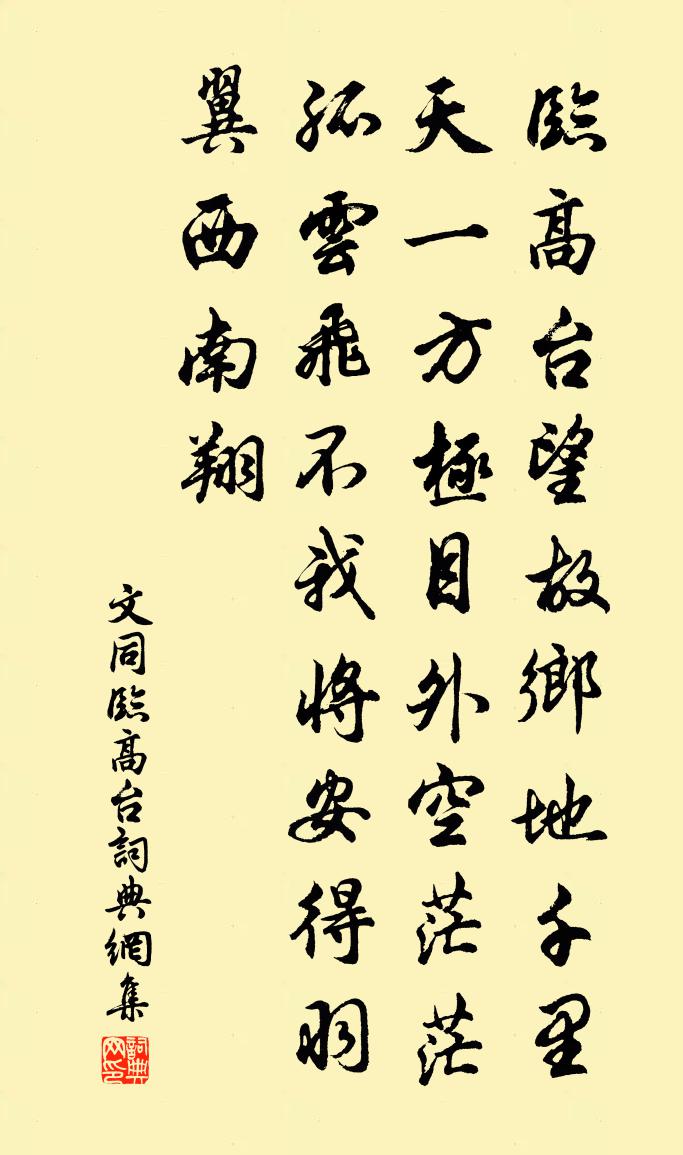 臨高台望故鄉地千里
天一方極目外空茫茫
孤雲飛不我將安得羽
翼西南翔
文同臨高台詞典網集
詞典網印